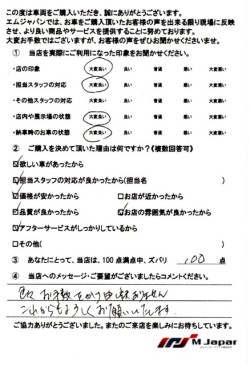 この度は車両をご購入いただき、誠にありがとうございます。
エムジャパンでは、お車をご購入頂いたお客様の声を出来る限り現場に反映
させ、より良い商品やサービスを提供することに努めております。
大変お手数ではございますが、お客様の声をぜひお聞かせくださいませ。
① 当店を実際にご利用になった印象をお聞かせください。
・店の印象 大変良い 良い 普通 悪い 大変悪い
・担当スタッフの対応 大変良い 良い 普通 悪い 大変悪い
・その他スタッフの対応 大変良い 良い 普通 悪い 大変悪い
・店内や展示場の状態 大変良い 良い 普通 悪い 大変悪い
・納車時のお車の状態 大変良い 良い 普通 悪い 大変悪い
② ご購入を決めて頂いた理由は何ですか？《複数回答可》
☑欲しい車があったから
☑担当スタッフの対応が良かったから(担当名 )
☑価格が安かったから □お店が近かったから
☑品質が良かったから ☑お店の雰囲気が良かったから
☑アフターサービスがしっかりしているから
□その他( )
③ あなたにとって、当店は、100点満点中、ズバリ 100 点
④ 当店へのメッセージ・ご要望がございましたらコメントください。
色々お手数をかけ申訳ありません
これからもよろしくお願いいたします。
ご協力ありがとうございました。またのご来店を楽しみにお待ちしています。
M Japan